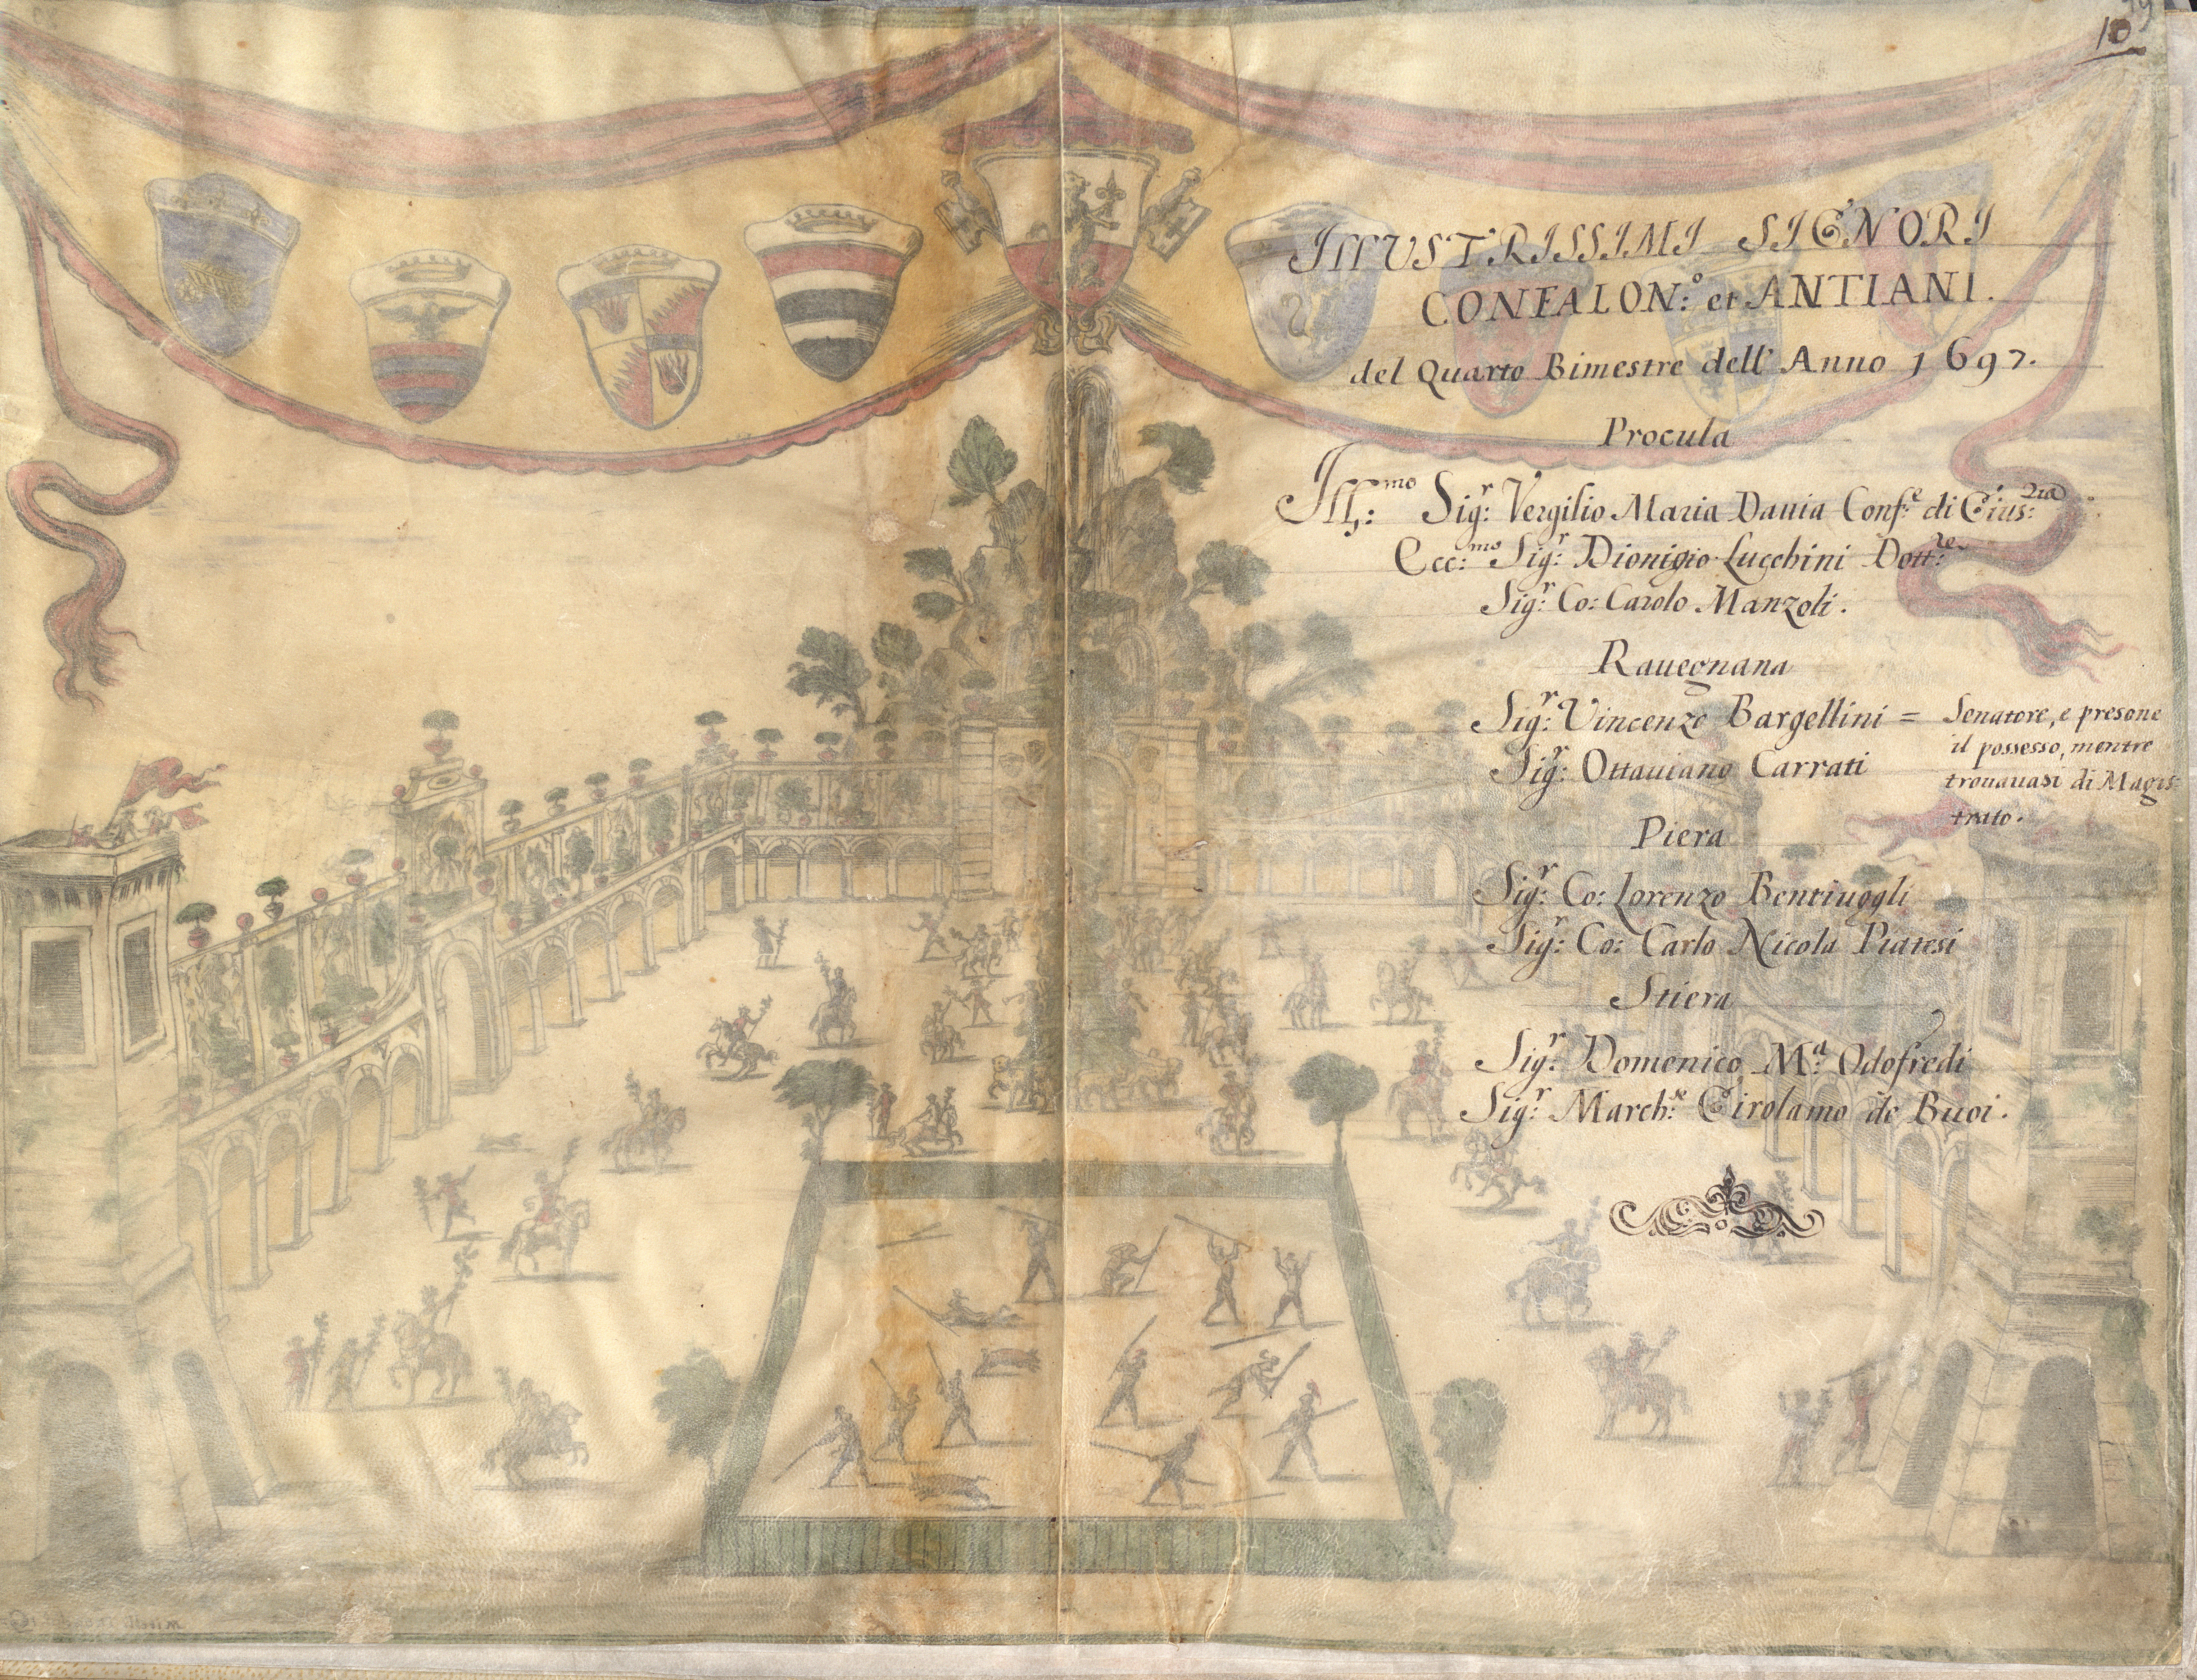 10
ILLUSTRISSIMI SIGNORI
CONFALON:º et ANTIANI.
del Quarto Bimestre dell' Anno 1697.
Procula
Ill:mo Sigr: Vergilio Maria Dauia Conf:e di Gius:zia
Ecc:mo Sigr: Dionigio Lucchini Dott:re
Sigr: Co: Carolo Manzoli.
Rauegnana
Sigr: Vincenzo Bargellini = Senatore, e presone
il possesso, mentre
Sigr: Ottauiano Carrati
trouauasi di Magis-
trato.
Piera
Sigr: Co: Lorenzo Bentiuogli
Sigr: Co: Carlo Nicola Piatesi
Stiera
Sigr: Domenico M:a Odofredi
Sigr: March:e Girolamo de Buoi.